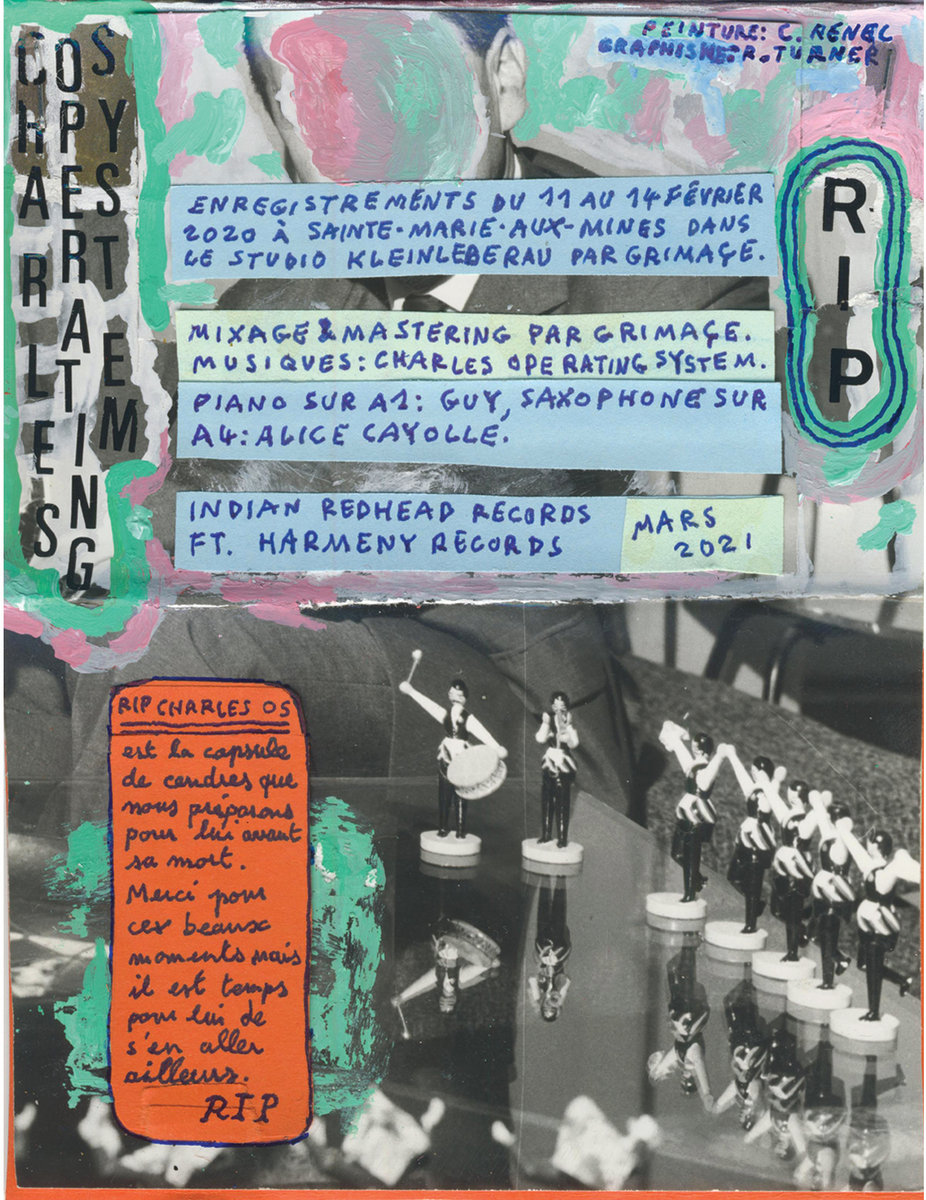 CHARLES
OPERATING
SYSTEM
PEINTURE: C. RENEC
GRAPHISME: R. TURNER
RIP
ENREGISTREMENTS DU 11 AU 14 FÉVRIER
2020 À SAINTE-MARIE-AUX-MINES DANS
LE STUDIO KLEINLEBERAU PAR GRIMAÇE.
MIXAGE & MASTERING PAR GRIMAÇE.
MUSIQUES: CHARLES OPERATING SYSTEM.
PIANO SUR A1: GUY, SAXOPHONE SUR
A4: ALICE CAYOLLE.
INDIAN REDHEAD RECORDS
FT. HARMENY RECORDS
MARS
2021
RIP CHARLES OS
est la capsule
de cendres que
nous préparons
pour lui avant
sa mort.
Merci pour
ces beaux
moments mais
il est temps
pour lui de
s'en aller
ailleurs.
RIP